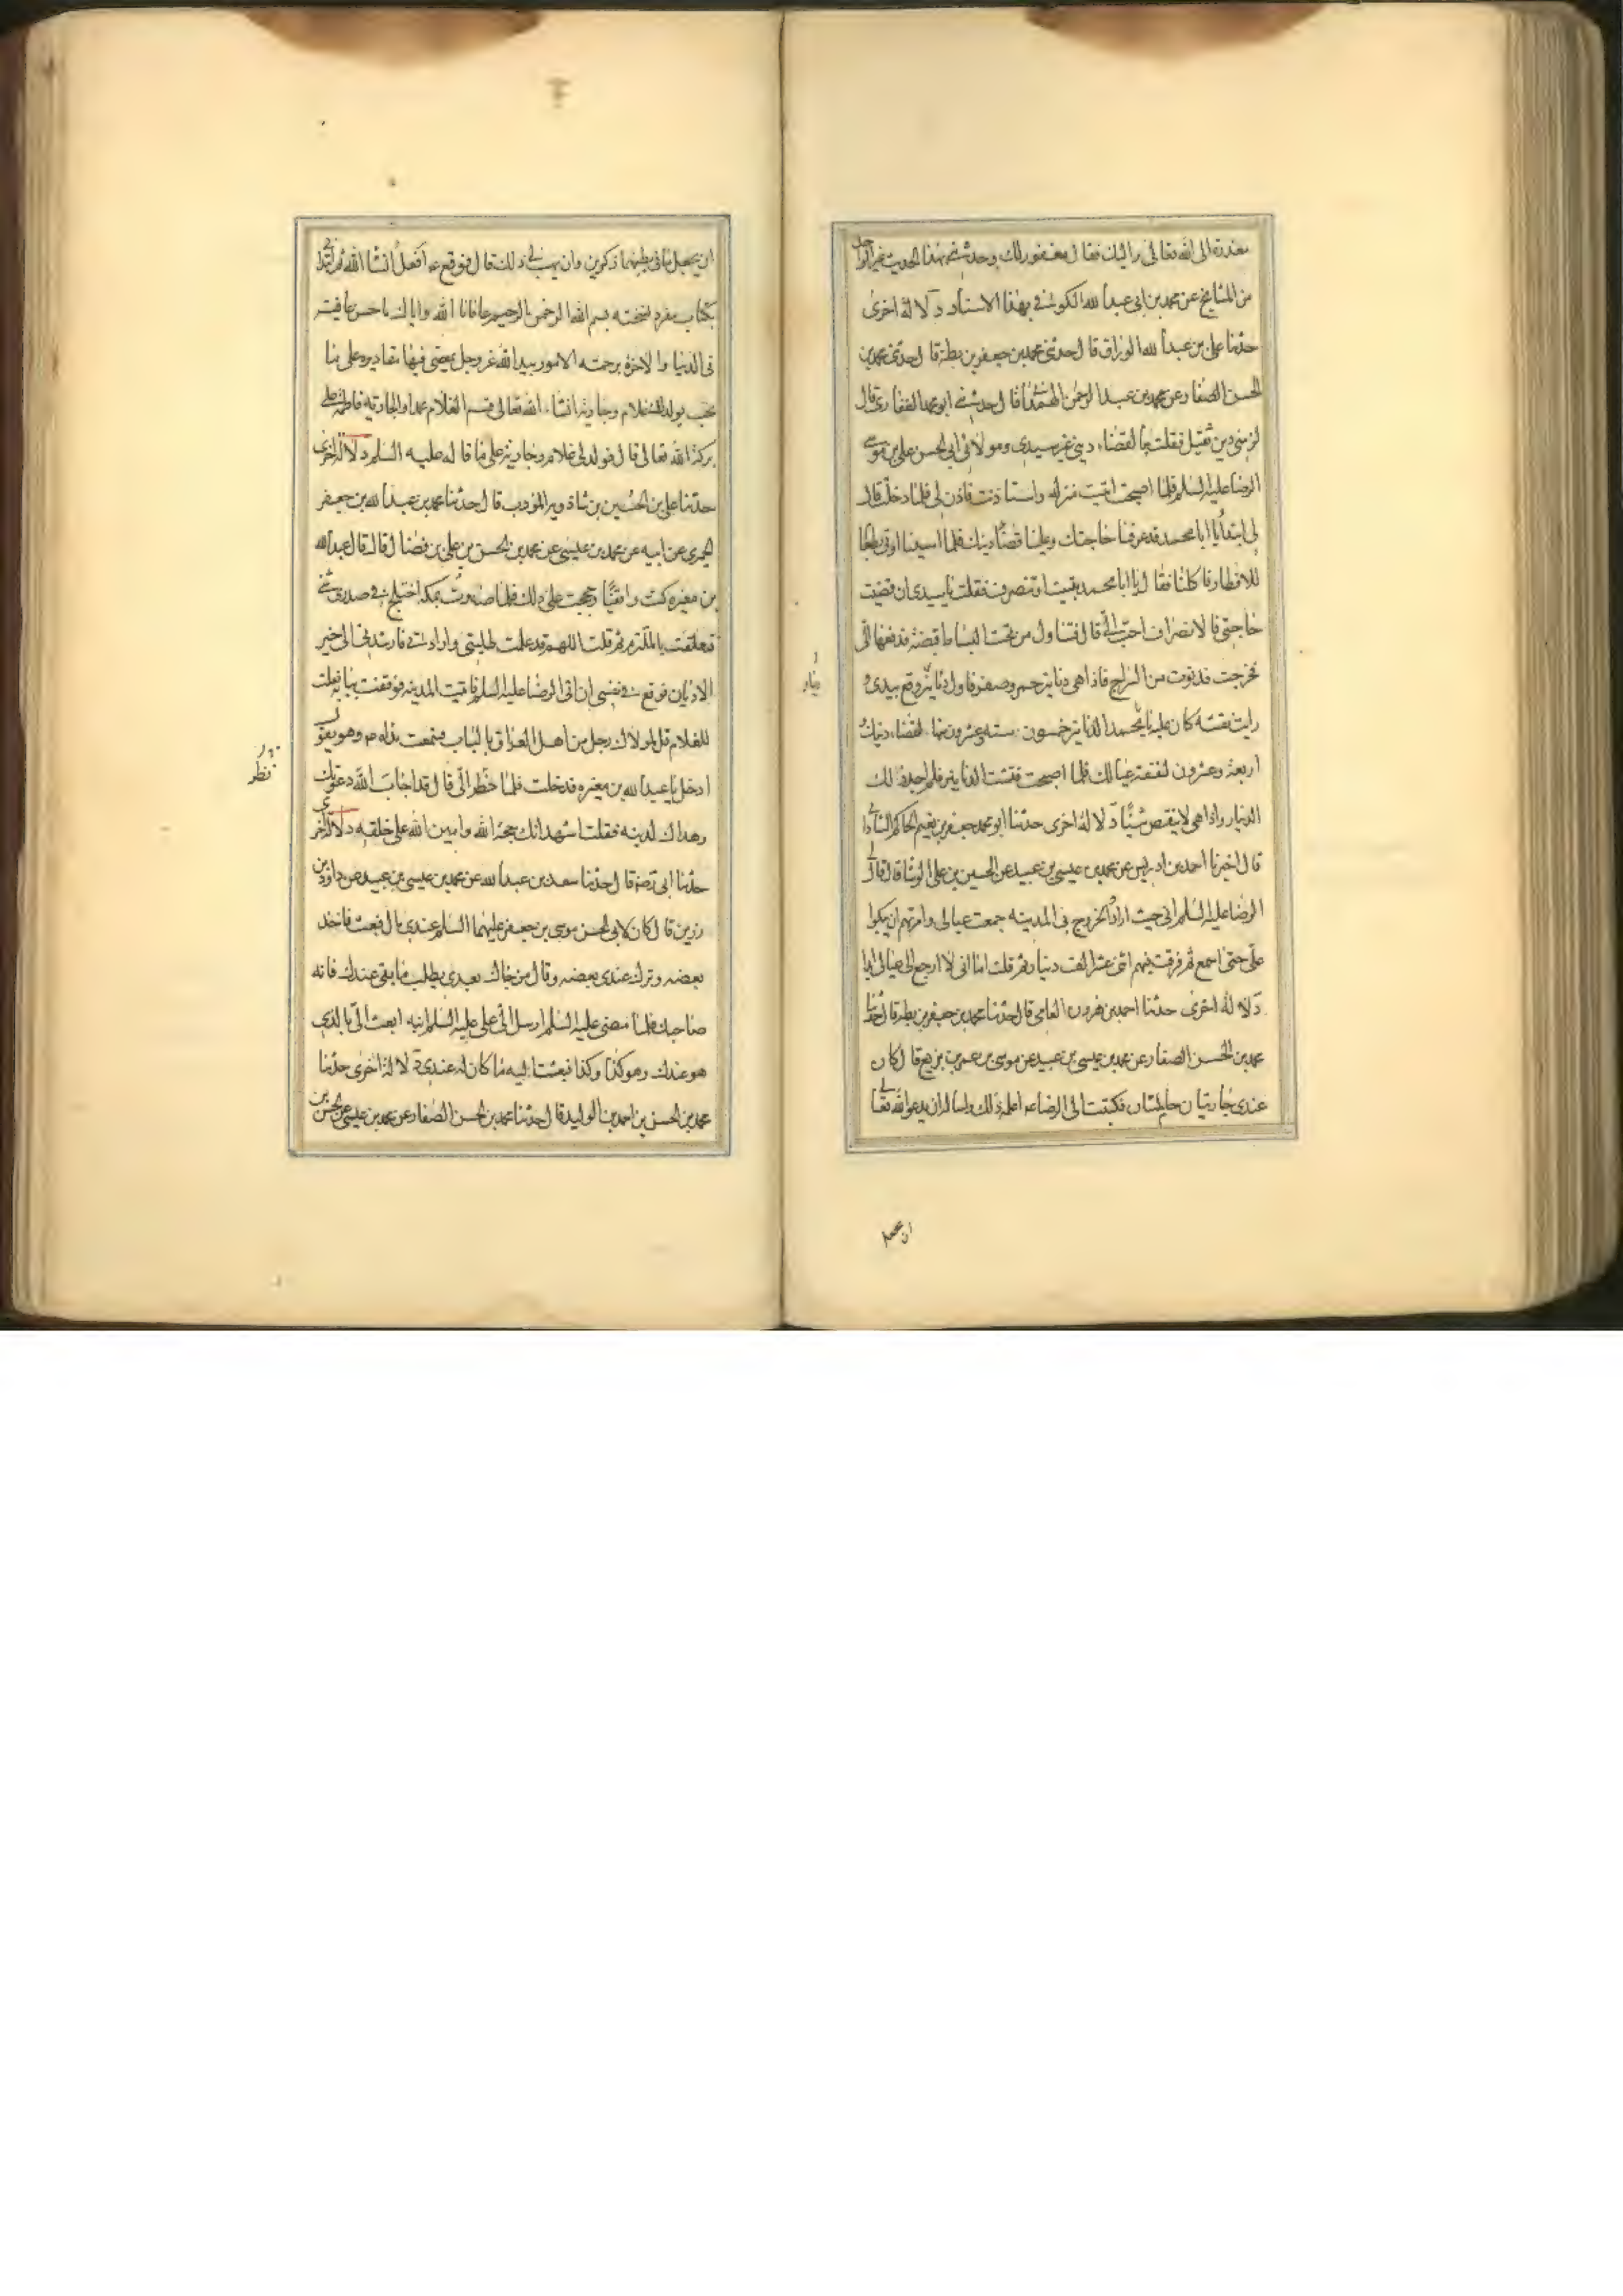 معذرة الى الله تعالى واليك فقال مغفور لك وحدثني بهذا الحديث غير واحد
من المشايخ عن محمد بن ابي عبد الله الكوفي بهذا الاسناد دلالة اخرى
حدثنا علي بن عبد الله الوراق قال حدثني محمد بن جعفر بن بطة قال حدثني محمد بن
الحسن الصفار عن محمد بن عبد الرحمن الهمداني قال حدثني ابو محمد الغفاري قال
لزمني دين ثقيل فقلت ما لقضاء ديني غير سيدي ومولائي ابي الحسن علي بن موسى
الرضا عليه السلم فلما اصبحت اتيت منزله واستاذنت فاذن لي فلما دخلت قال
لي ابتداء يا ابا محمد قد عرفنا حاجتك وعلينا قضاء دينك فلما امسينا اوتي بطعام
للافطار فاكلنا فقال يا ابا محمد تبيت او تنصرف فقلت يا سيدي ان قضيت
حاجتي فالانصراف احب الي قال فتناول من تحت البساط قبضة فدفعها الي
فخرجت فدنوت من السراج فاذا هي دنانير حمر وصفر فاول دنانير وقع بيدي و
رايت نقشه كان عليه يا محمد الدنانير خمسون ستة وعشرون منها لقضاء دينك و
اربعة وعشرون لنفقة عيالك فلما اصبحت فتشت الدنانير فلم اجد ذلك
الدينار واذا هي لا ينقص شيئا دلالة اخرى حدثنا ابو محمد جعفر بن نعيم الحاكم الشاذاني
قال اخبرنا احمد بن ادريس عن محمد بن عيسى بن عبيد عن الحسين بن علي الوشا قال قال لي
الرضا عليه السلم اني حيث ارادوا الخروج بي المدينه جمعت عيالي وامرتهم ان يبكوا
علي حتى اسمع ثم فرقت فيهم اثني عشر الف دينار ثم قلت اما اني لا ارجع الى عيالي ابدا
دلالة اخرى حدثنا احمد بن هرون الفامي قال حدثنا محمد بن جعفر بن بطة قال حدثنا
محمد بن الحسن الصفار عن محمد بن عيسى بن عبيد عن موسى بن عمر بن بزيع قال كان
عندي جاريتان حاملتان فكتبت الى الرضا عه اعلمه ذلك واساله ان يدعو الله تعالى
ان يجعل
ان يجعل ما في بطنهما ذكرين وان يهب لي ذلك قال فوقع عه افعل انشا الله ثم ابتداني
بكتاب مفرد نسخته بسم الله الرحمن الرحيم عافانا الله واياك باحسن عافيته
في الدنيا والاخرة برحمته الامور بيد الله عز وجل يمضي فيها مقاديره على ما
يحب يولد لك غلام وجارية انشاء الله تعالى فسم الغلام محمدا والجاريه فاطمة على
بركة الله تعالى قال فولد لي غلام وجارية على ما قاله عليه السلم دلالة اخرى
حدثنا علي بن الحسين بن شاذويه المؤدب قال حدثنا محمد بن عبد الله بن جعفر
الحميري عن ابيه عن محمد بن عيسى عن محمد بن الحسن بن علي بن فضال قال قال عبد الله
بن مغيره كنت واقفيا وحججت على ذلك فلما صرت بمكة اختلج في صدري شئ
فتعلقت بالملتزم ثم قلت اللهم قد علمت طلبتي وارادتي فارشدني الى خير
الاديان فوقع في نفسي ان اتي الرضا عليه السلم فاتيت المدينه فوقفت ببابه فقلت
للغلام قل لمولاك رجل من اهل العراق بالباب فسمعت نداءه وهو يقول
ادخل يا عبد الله بن مغيره فدخلت فلما نظر الي قال قد اجاب الله دعوتك
وهداك لدينه فقلت اشهد انك حجة الله وامين الله على خلقه دلالة اخرى
نظر
حدثنا ابي رضه قال حدثنا سعد بن عبد الله عن محمد بن عيسى بن عبيد عن داود بن
رزين قال كان لابي الحسن موسى بن جعفر عليهما السلم عندي مال فبعث فاخذ
بعضه وترك عندي بعضه وقال من جاك بعدي يطلب ما بقي عندك فانه
صاحبك فلما مضى عليه السلم ارسل الي علي عليه السلم ابنه ابعث الي بالذي
هو عندك وهو كذا وكذا فبعثت اليه ما كان له عندي دلالة اخرى حدثنا
محمد بن الحسن بن احمد بن الوليد قال حدثنا محمد بن الحسن الصفار عن محمد بن عيسى عن الحسن بن